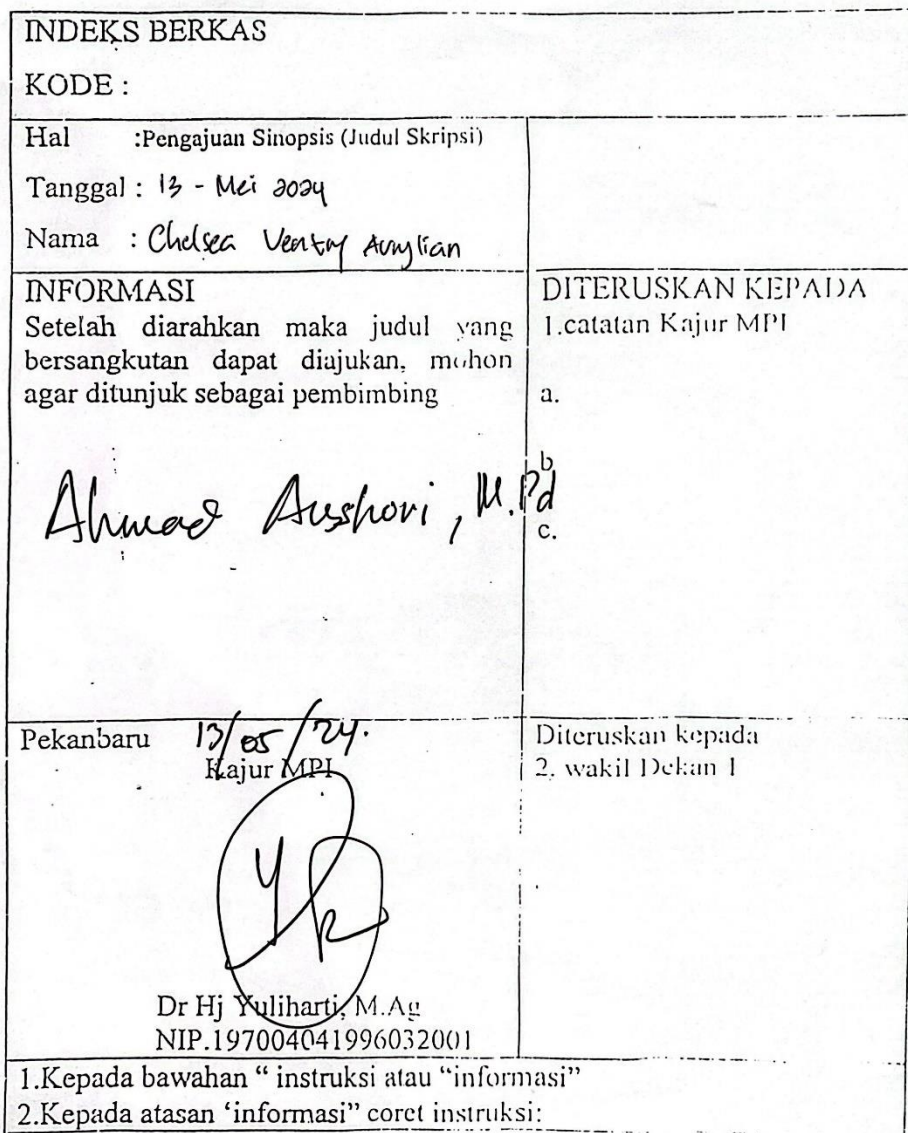 INDEKS BERKAS
KODE :
Hal :Pengajuan Sinopsis (Judul Skripsi)
Tanggal : 13 - Mei 2024
Nama : Chelsea
INFORMASI
Setelah diarahkan maka judul yang
bersangkutan dapat diajukan, mohon
agar ditunjuk sebagai pembimbing
Ahmad Anshori, M.Pd
DITERUSKAN KEPADA
1.catatan Kajur MPI
a.
b
c.
Pekanbaru 13/05/24.
Kajur MPI
Dr Hj Yuliharti, M.Ag
NIP.197004041996032001
Diteruskan kepada
2. wakil Dekan 1
1.Kepada bawahan “ instruksi atau “informasi”
2.Kepada atasan ‘informasi” coret instruksi: